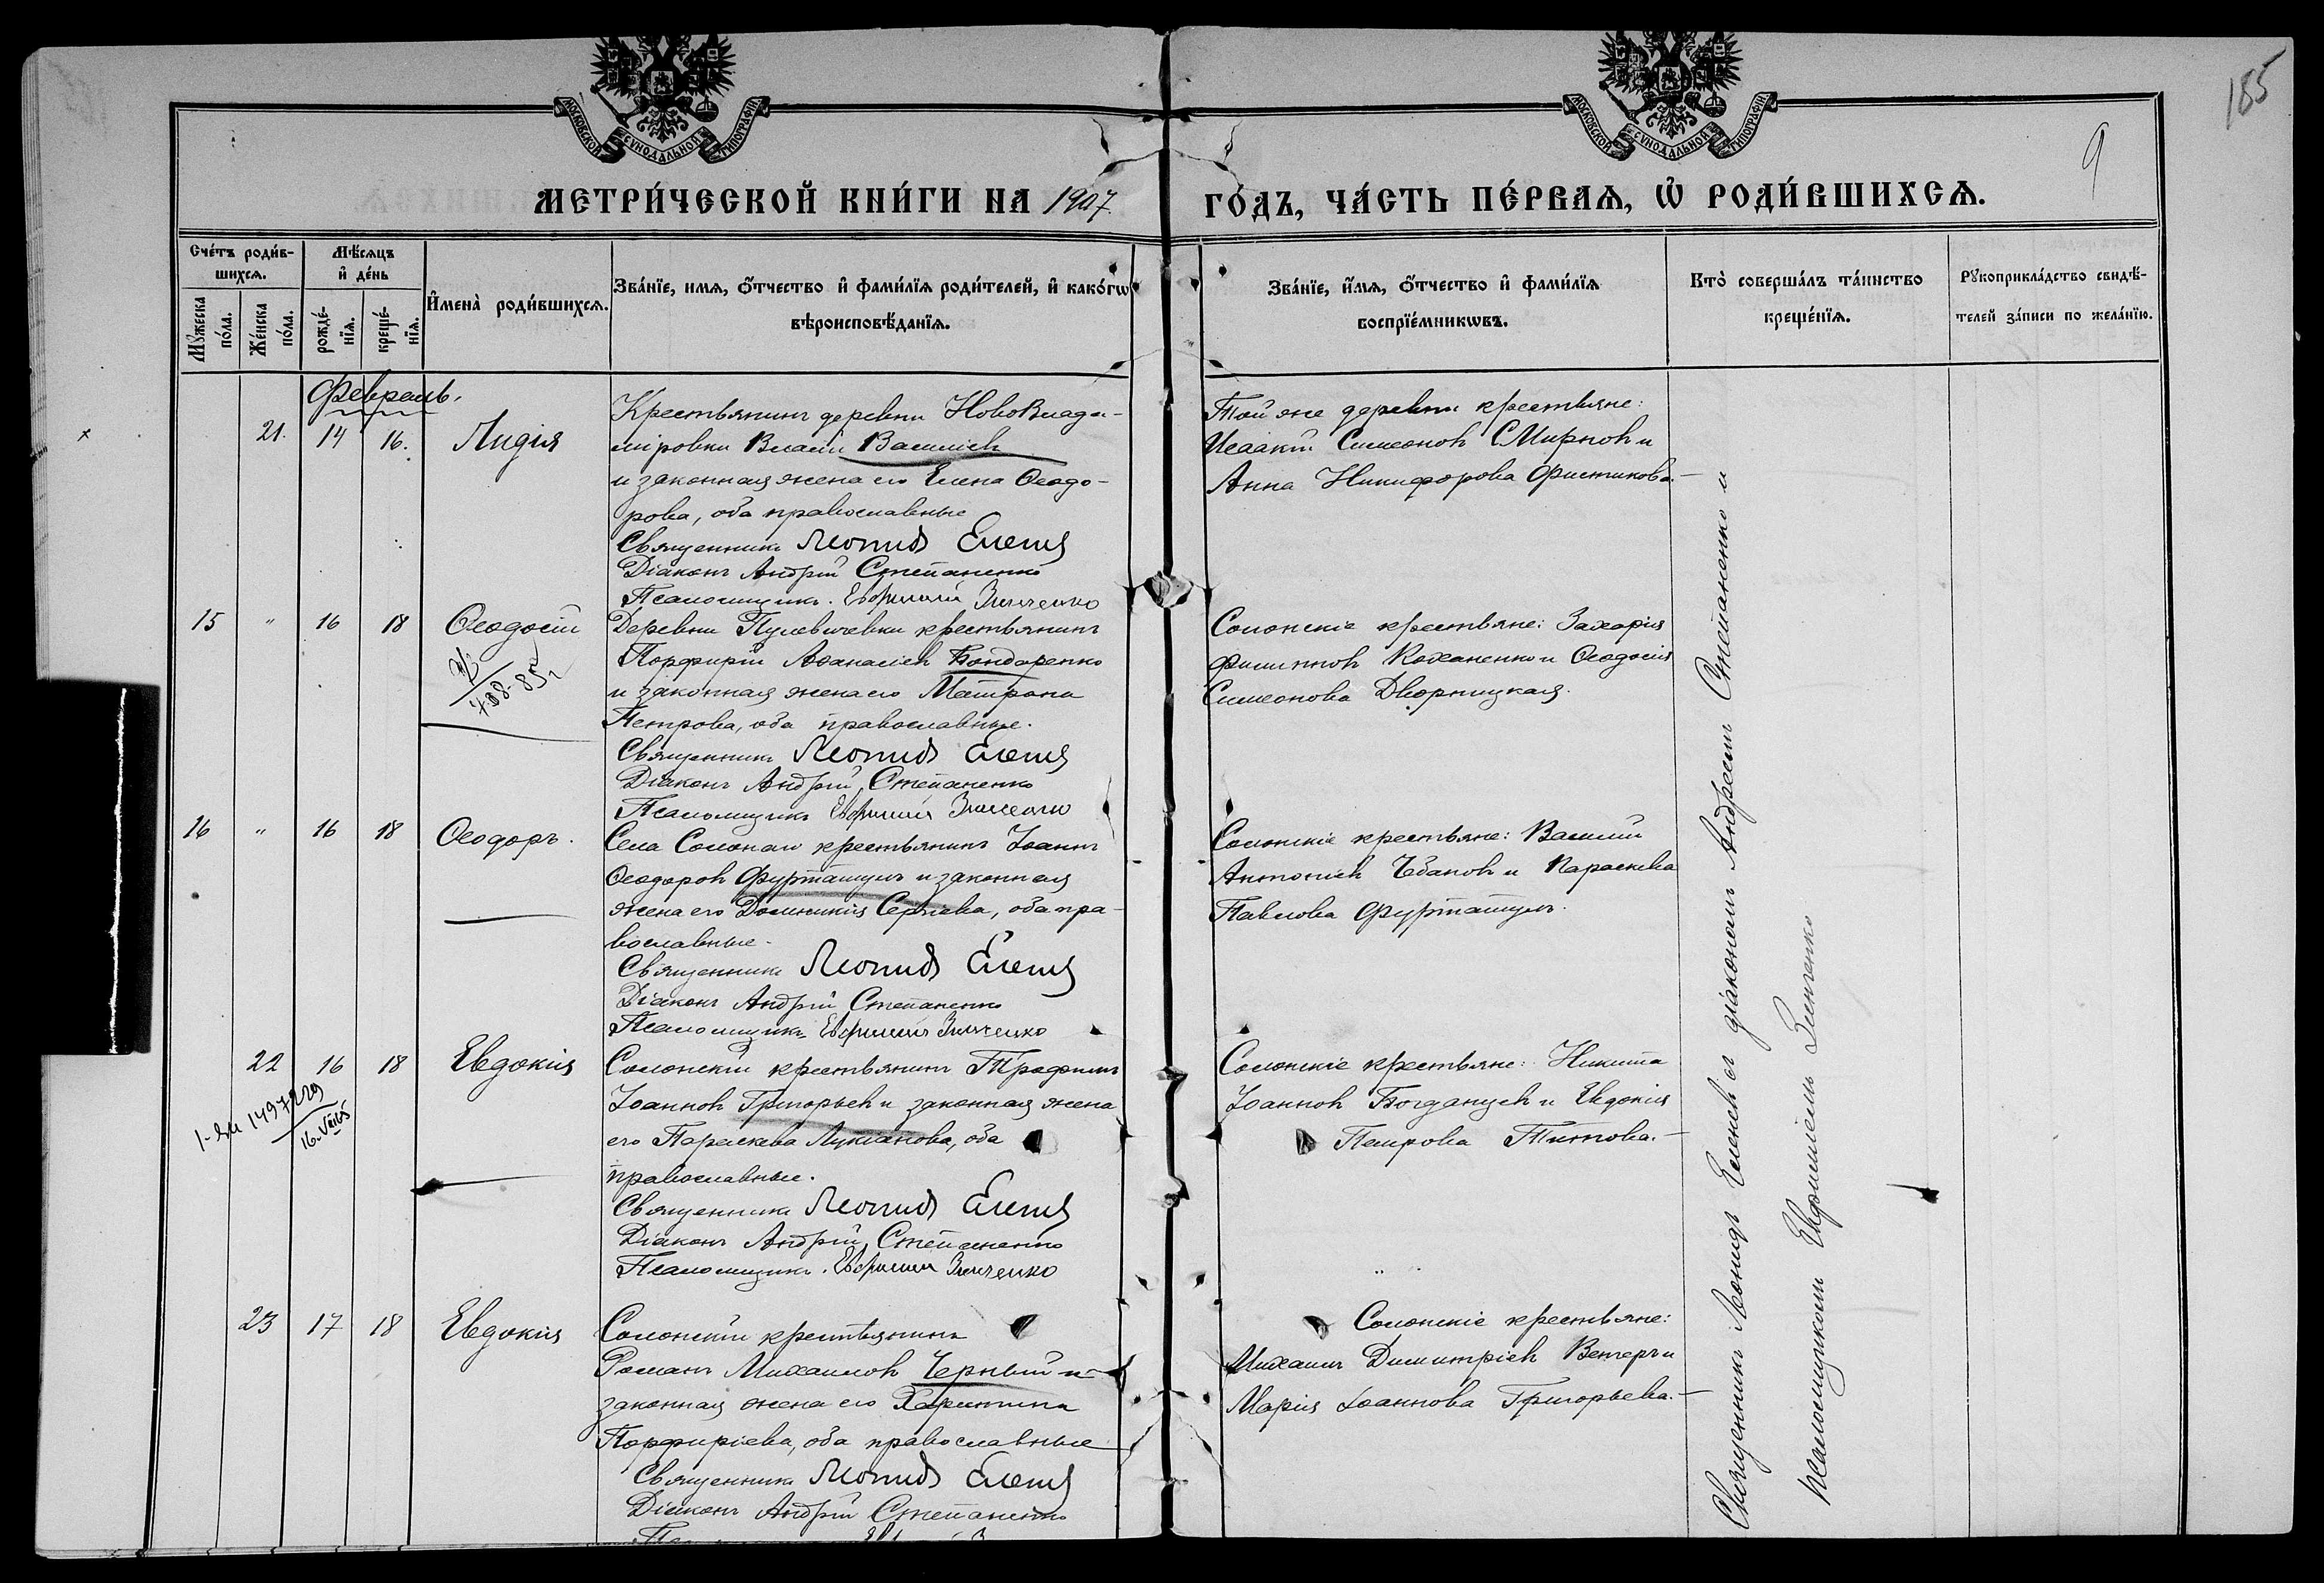 185
9
МОСКОВСКОЙ СѴНОДАЛЬНОЙ ТИПОГРАФІИ
МОСКОВСКОЙ СѴНОДАЛЬНОЙ ТИПОГРАФІИ
МЕТРИ́ЧЕСКОЙ КНИ́ГИ НА 1907 ГО́ДЪ, ЧА́СТЬ ПЕ́РВАѦ, Ѡ҆ РОДИ́ВШИХСѦ.
Сче́тъ роди́в-
шихсѧ.
Мѣ́сѧцъ
и҆ де́нь
Мꙋ́жеска
по́ла.
Же́нска
по́ла.
рожде́-
нїѧ.
креще́-
нїѧ.
И҆мена̀ роди́вшихсѧ.
Зва́нїе, имѧ, ѻ҆́тчество и҆ фами́лїѧ роди́телей, и҆ како́гѡ
вѣроисповѣ́данїѧ.
Зва́нїе, и҆́мѧ, ѻ҆́тчество и҆ фами́лїѧ
воспрїе́мникѡвъ.
Кто̀ соверша́лъ та́инство
креще́нїѧ.
Рꙋкоприкла́дство свидѣ́-
телей за́писи по жела́нїю.
Февраль.
21. 14 16. Лидія
Крестьянинъ деревни НовоВлади-
міровки Власій Васильевъ
и законная жена его Елена Ѳеодо-
рова, оба православные
Священникъ Леонидъ Еленевъ
Діаконъ Андрій Степаненко
Псаломщикъ Евфимій Зинченко
Той же деревни крестьяне:
Исаакій Симеоновъ Смирновъ и
Анна Никифорова Фистикова.
15 " 16 18 Ѳеодосій
Деревни Пулевичевки крестьянинъ
Порфирій Аѳанасіевъ Бондаренко
и законная жена его Матрона
Петрова, оба православные.
Священникъ Леонидъ Еленевъ
Діаконъ Андрій Степаненко
Псаломщикъ Евфимій Зинченко
Солонскіе крестьяне: Захарія
Филипповъ Коханенко и Ѳеодосія
Симеонова Дворницкая.
16 " 16 18 Ѳеодоръ.
Села Солонаго крестьянинъ Іоаннъ
Ѳеодоровъ Фурташулъ и законная
жена его Домникія Сергіева, оба пра-
вославные.
Священникъ Леонидъ Еленевъ
Діаконъ Андрій Степаненко
Псаломщикъ Евфимій Зинченко
Солонскіе крестьяне: Василій
Антоніевъ Чебановъ и Параскева
Павлова Фурташулъ.
22 16 18 Евдокія
Солонскій крестьянинъ Трофимъ
Іоанновъ Григорьевъ и законная жена
его Параскева Лукіанова, оба
православные.
Священникъ Леонидъ Еленевъ
Діаконъ Андрій Степаненко
Псаломщикъ Евфимій Зинченко
Солонскіе крестьяне: Никита
Іоанновъ Богданцевъ и Евдокія
Петрова Титова.
23 17 18 Евдокія
Солонскій крестьянинъ
Романъ Михаиловъ Черный и
законная жена его Харитина
Порфиріева, оба православные
Священникъ Леонидъ Еленевъ
Діаконъ Андрій Степаненко
Солонскіе крестьяне:
Михаилъ Димитріевъ Ветеръ и
Марія Іоаннова Григорьева.
Священникъ Леонидъ Еленевъ съ діакономъ Андреемъ Степаненко и
псаломщикомъ Евфиміемъ Зинченко